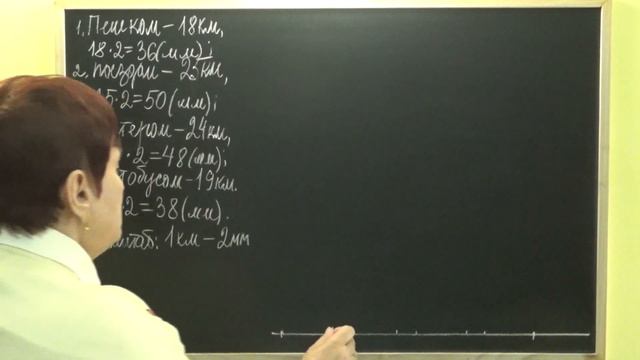 1. Пешком – 18 км,
18·2=36(мм);
2. поездом – 25 км,
5·2=50(мм);
тером – 24 км,
·2=48(мм);
тобусом – 19 км.
·2=38(мм).
штаб: 1 км – 2 мм